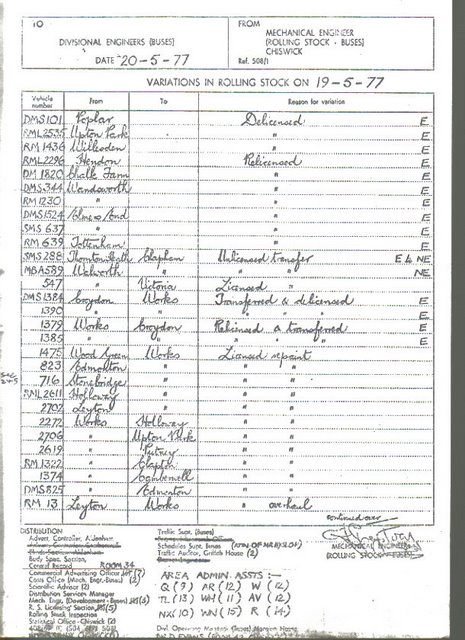 TO
DIVISIONAL ENGINEERS (BUSES)
DATE 20-5-77
FROM
MECHANICAL ENGINEER
(ROLLING STOCK - BUSES)
CHISWICK
Ref. 508/1
VARIATIONS IN ROLLING STOCK ON 19-5-77
Vehicle number From To Reason for variation
DMS101 Poplar Delicensed E
RML2535 Upton Park " E
RM 1436 Willesden " E
RML2296 Hendon Relicensed E
DM 1820 Chalk Farm " E
DMS344 Wandsworth " E
RM 1230 " " E
DMS1524 Elmers End " E
SMS 637 " " E
RM 639 Tottenham " E
SMS288 Thornton Heath Clapham Unlicensed transfer E & NE
MBA589 Walworth " " " NE
547 " Victoria Licensed "
DMS1384 Croydon Works Transferred & delicensed E
1390 " " " " E
1379 Works Croydon Relicensed & transferred E
1385 " " " " " E
1475 Wood Green Works Licensed repaint
823 Edmonton " " "
716 Stonebridge " " "
RML2611 Holloway " " "
2702 Leyton " " "
2272 Works Holloway " "
2706 " Upton Park " "
2619 " Putney " "
RM 1322 " Clapton " "
1374 " Camberwell " "
DMS825 " Edmonton " "
RM 13 Leyton Works " overhaul
continued over
MECHANICAL ENGINEER
ROLLING STOCK
DISTRIBUTION
Advert. Controller, A.Jenher
Body Spec. Section,
Central Record ROOM 34
Commercial Advertising Officer
Costs Office (Mech. Engr.-Buses) (2)
Scientific Adviser (2)
Distribution Services Manager
Mech. Engr. (Development - Buses)
R. S. Licensing Section,
Rolling Stock Inspection
Statistical Office - Chiswick (2)
Traffic Supt. (Buses)
Schedules Supt. Buses
Traffic Auditor, Griffith House (2)
AREA ADMIN. ASSTS :-
Q (9) AR (12) W (12)
TL (13) WH (11) AV (12)
NX (10) WN (15) R (14)